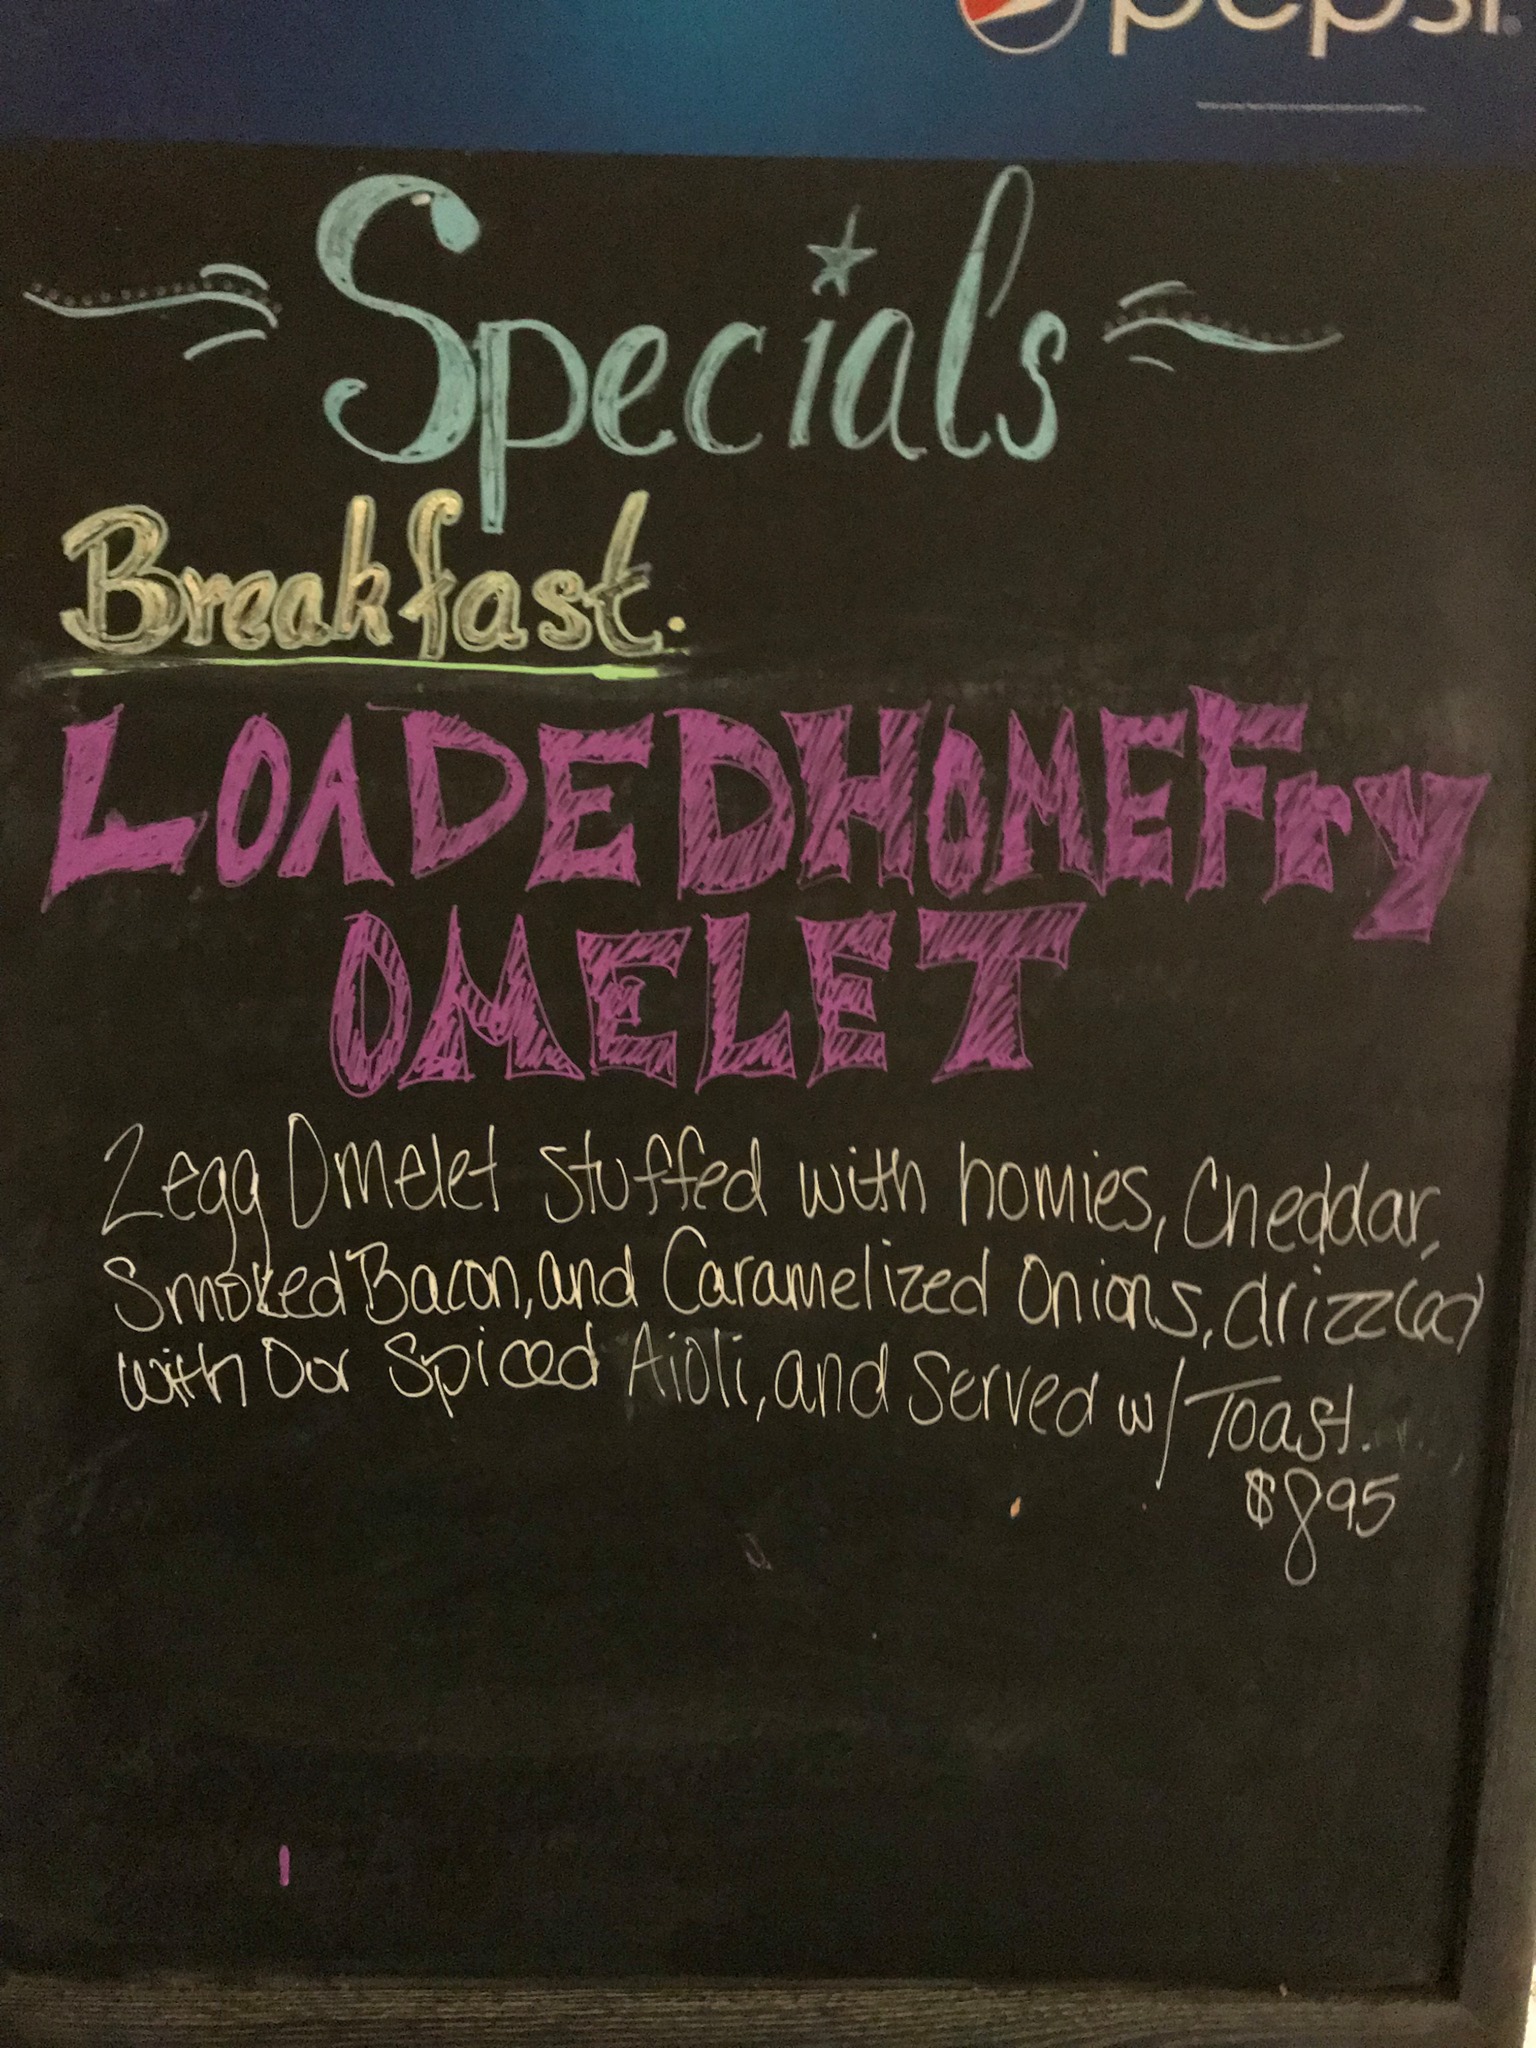 pepsi
Specials
Breakfast.
LOADED HOMEFry
OMELET
2 egg Omelet stuffed with homies, Cheddar,
Smoked Bacon, and Caramelized Onions, drizzled
with Our Spiced Aioli, and Served w/ Toast.
$895